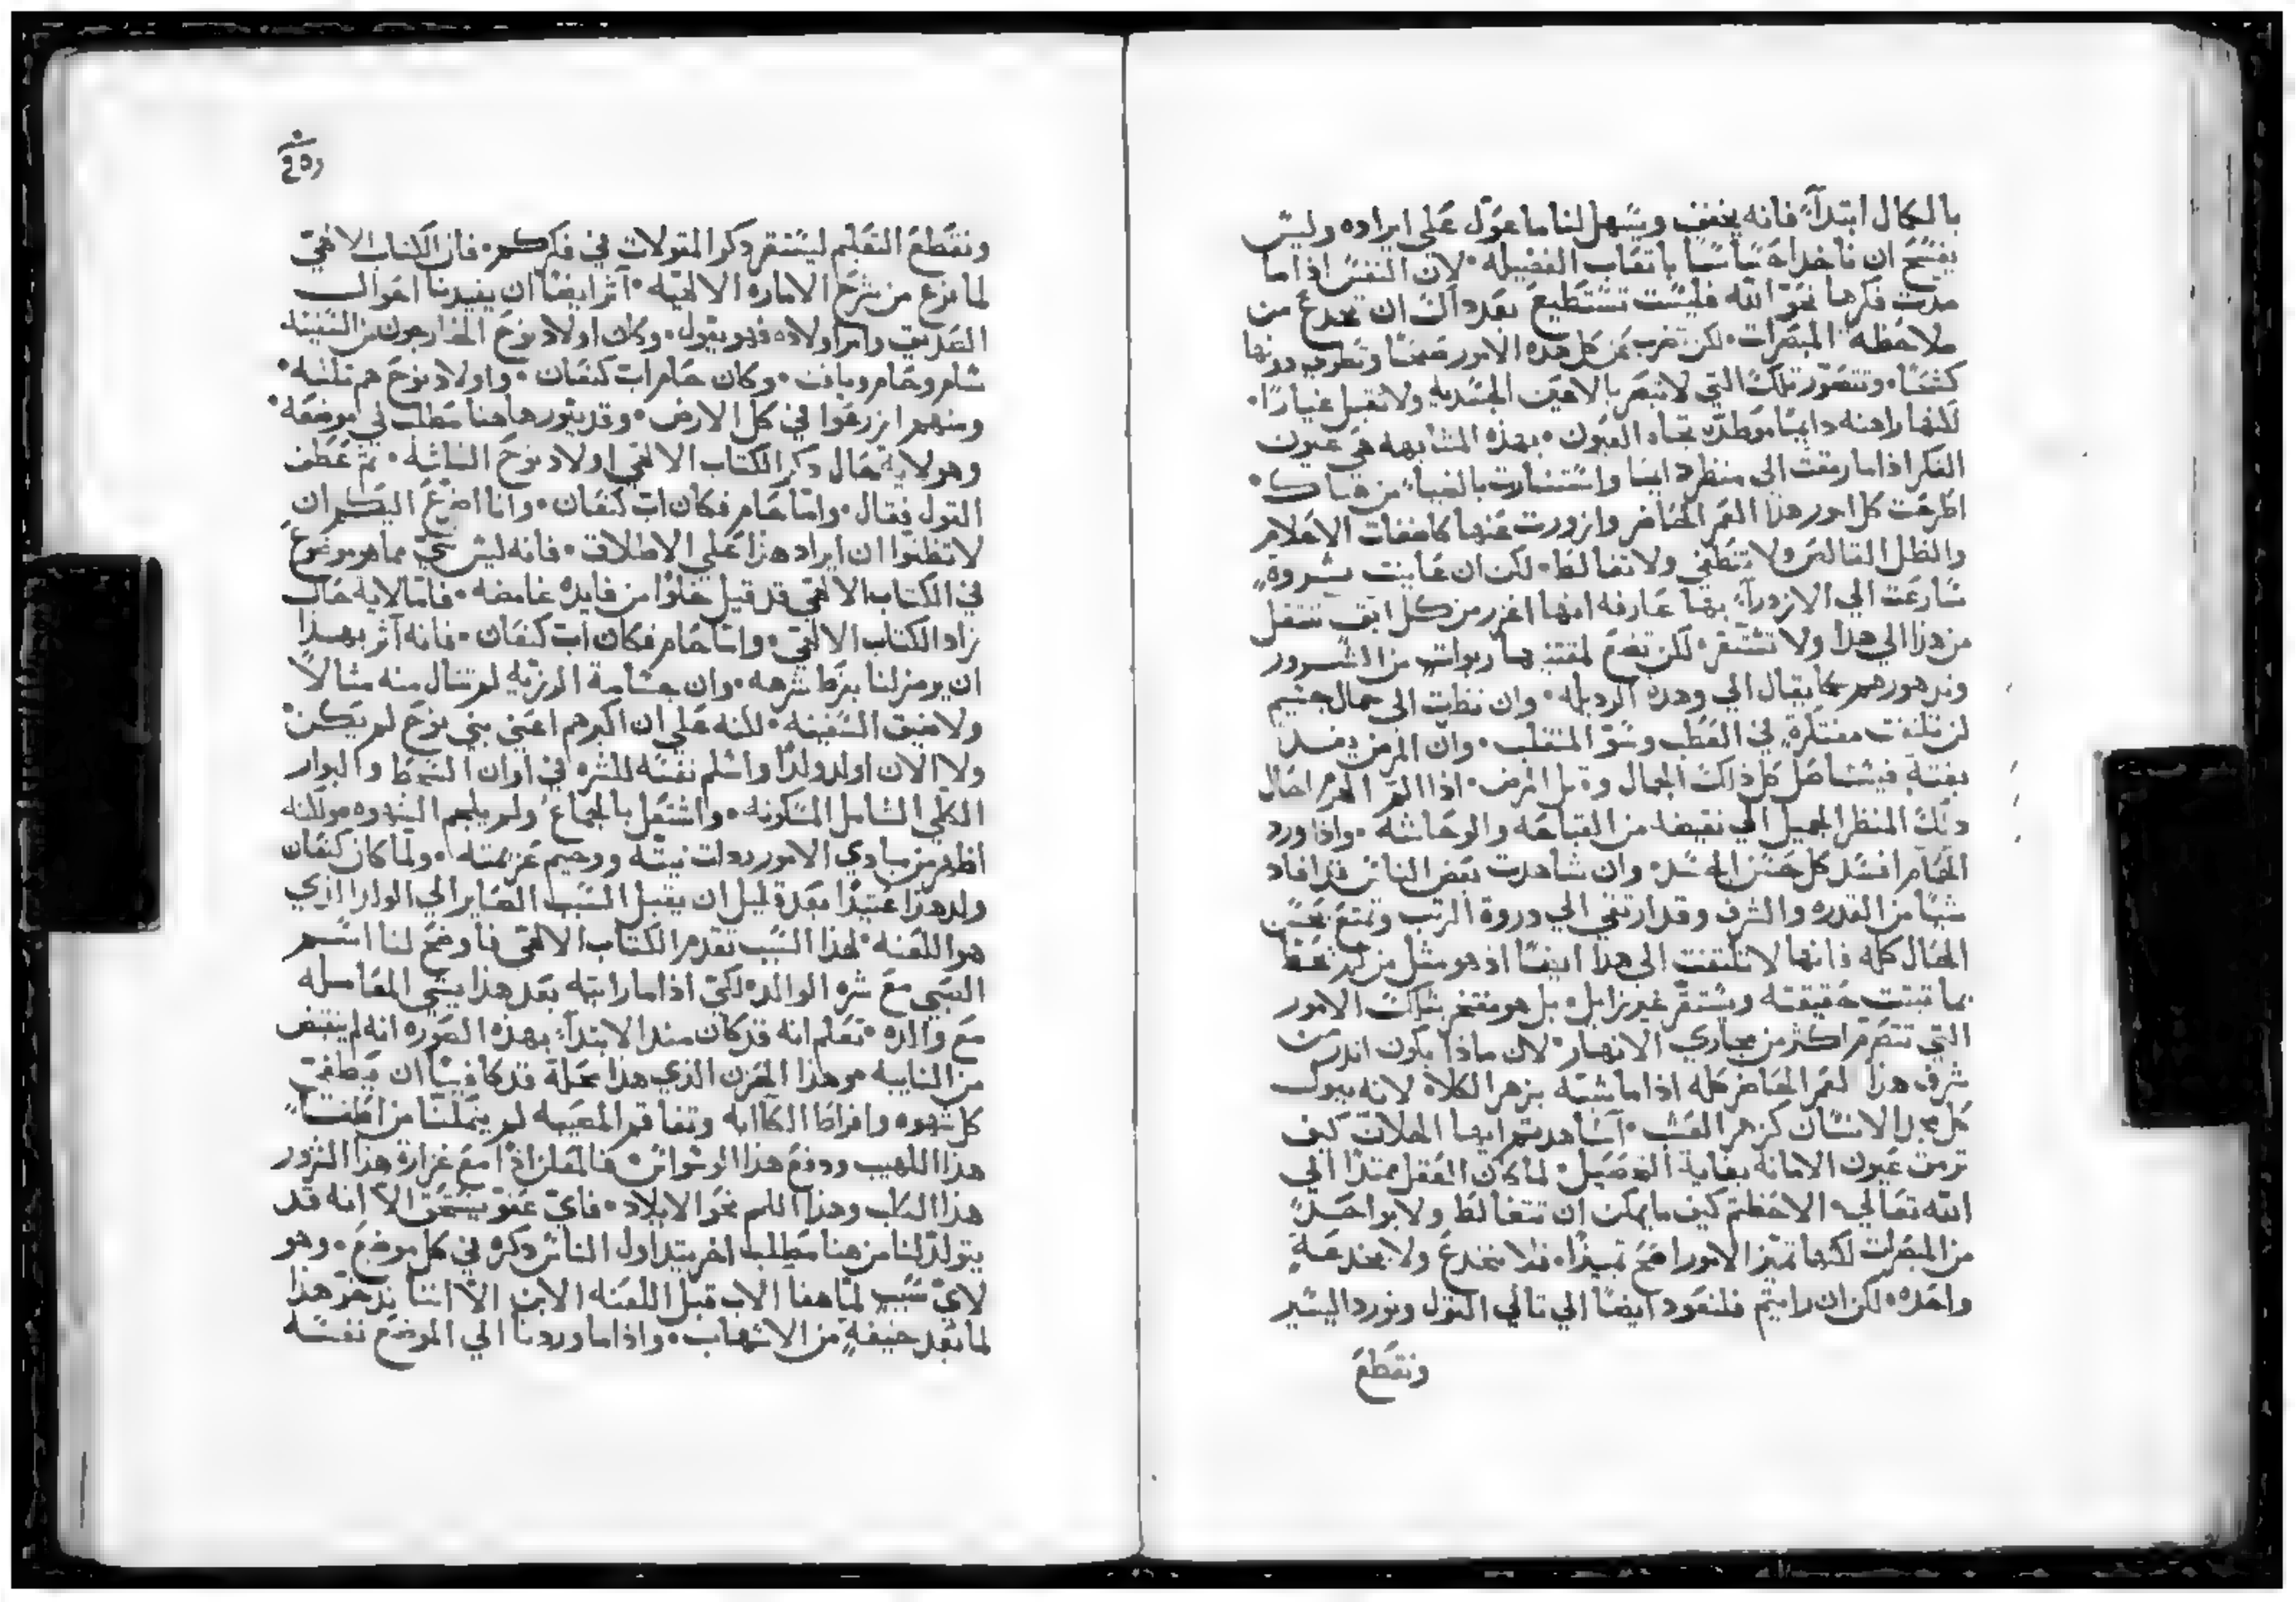 بالكمال ابتدآءً فانه يخفف ويسهل لنا ما عوّل عَلي ايراده وليس
يفسَح ان ناخد احسَاسًا باتعَاب الفضيله ٠ لان النفسَ اذا ما
مدّت فكرها نحوَ الله فليسَت تستَطيعَ بعَد دَلك ان تخدع من
ملاحَظة المبصَرات ٠ لكن تضرب عَن كل هذه الامور صَفحًا وتطوي دونها
كشحًا ٠ وتتصَوّر تلكَ التي لا تبصَر بالاعيَن الجسَديه ولا تقبل غيارًا ٠
لكنها راهنه دايمًا موَطدَه تجاه العيَون ٠ بهذه المشابهه هيَ عيون
الفكر اذا ما رمقت الي منظر دايمًا واستنارت بالضيآء من هناك ٠
اطرحَت كل امور هذا العمَر الحَاضر وازورت عَنها كاضغاث الاحَلام
والظل القالصَ ولا تنطَغي ولا تغالط ٠ لكن ان عَاينت بثروةٍ
سَارعَت الي الازدرآءِ بهَا عَارفه انها اغدر من كل ابق تنتقل
من هذا الي هذا ولا تستقر ٠ لكن تضعَ لمقتنيها ربواتٍ من الشرور
وتدهورهم كما يقال الي وهده الرديله ٠ وان نظرَت الي جمال جسَيم
لن تلتفت مفتكرةً في العَطب وسَوّ المنقلب ٠ وانّ المرض يفسد
بغتةً فيستاصَل كل ذاكَ الجمال وقبل المرض ٠ اذا المّ الهرم احَال
دلكَ المنظر الجميل الي نقيضه من القباحَه والوحَاشه ٠ واذا ورد
الحَمام افسَد كل حسَن الجسَد ٠ وان شاهدت بعَض الناسَ قد افاد
شيًا من القدره والشرف وقد ارتقي الي دروة الرتب وتمتعَ بحسَن
الحَال كله فانها لا تلتفت الي هذا ايضًا اذ هو مثل من لم يحَظا
بما تثبت حقيقته ويسَتقرّ غير زايل ٠ بل هو مفتخر بتلكَ الامور
التي تتصَرّم اكثر من مجاري الانهار ٠ لان ماذا يكون اندر من
شرف هذا العَمر الحَاضر كله اذا ما شبّه بزهر الكلاه لانه يقول
كل مجد الانسَان كزهر العَشب ٠ اسَاهدتم ايها الخلان كيف
ترمق عيَون الامانه بغاية التحصَيل ٠ لما كان العَقل ممتدًا الي
الله تعَالي ٠ الاحَظتم كيف ما يمكن ان تتغالطَ ولا بواحَدٍ
من المبصَرات لكنها تميّز الامور اصَحَ تمييزًا ٠ فلا تنخدعَ ولا بخدعَةٍ
واحَده ٠ لكن ان رايتم فلنعَود ايضًا الي تالي القول ونورد اليسَير
ونقطعَ
ونقطعَ التعَليم ليسَتقر دكر المقولات في فكركم ٠ فان الكتاب الالاهيّ
لما فرع من شرح الاماره الالاهيّه ٠ آثر ايضًا ان يفيدنا احوال
الصَديق وامر اولاده فهو يقول ٠ وكان اولاد نوحَ الخارجون من السَفينه
سَام وحَام ويافت ٠ وكان حَام اب كنعَان ٠ واولاد نوحَ هم تلثه ٠
ومنهم ازرعَوا في كل الارض ٠ وقد يثور هاهنا مَطلب في موضعَه ٠
وهو لاية حَال دكر الكتاب الالاهي اولاد نوحَ الثلثه ٠ تمّ عَطف
القول فقال ٠ وامّا حَام فكان ابَ كنعَان ٠ وانا اضرعَ اليكم ان
لا تظنوّا ان ايراد هذا عَلي الاطلاق ٠ فانه ليسَ شيَ مما هو موضوعَ
في الكتاب الالاهيَ قد قيل خلوًا من فايده غامضه ٠ فامّا لاية حَال
زاد الكتاب الالاهيّ ٠ وامّا حَام فكان ابَ كنعَان ٠ فانه آثر بهذا
ان يرمز لنا بفرَط شرهه ٠ وان جسَامة الرزيّه لم تنال منه منالًا
ولا ضيق السَفينه ٠ لكنه عَلي ان اكبرهم اعَني بني نوحَ لم يكن
ولا الان اولد ولدًا واسَلم نفسَه للشره في اوان السَخط والبوار
الكلي الشامل المسَكونه ٠ واشتغل بالجماعَ ولم يلجم الشهوه ٠ ولكنه
اظهر من مبادي الامور ردات نيتّه ووخيم عَزيمته ٠ ولما كان كنعَان
ولد هذا عَتيدًا بعَد قليل ان يقبل السَبب الصَاير الي الوالد الذي
هو اللعَنه ٠ لهذا السَبب تقدم الكتاب الالاهيّ فاوضحَ لنا اسَم
الصَبي معَ شره الوالد ٠ لكيّ اذا ما رايته بعَد هذا يسَي المعَامله
معَ والده ٠ تعَلم انه قد كان منذ الابتدآءِ بهذه الصَوره انه لم ينقبض
من النايبه ٠ وهذا الحَزن الذي هذا محَله قد كان فيه كافيًا ان يطفيَ
كل شهوه وافراط الكآابه وتفاقم المصَيبه لم يتمكّنا من اطَفآء
هذا اللهيب ودفعَ هذا الوسَواسَ فالمعَلن اذًا معَ غزارة هذا الشرور
هذا الكلَب وهذا اللم نحوَ الايلاد ٠ فايّ عَفوٍ يستحَق الاّ انه قد
يتولدّ لنا من هنا مطلب اخر يتداول الناسَ دكره في كل موضعَ ٠ وهو
لايّ سَببٍ لمّا هفا الاب قبل اللعَنه الابن الاّ اننا ندخرَ هذا
لما بعَد خيفةً من الاسَهاب ٠ واذا ما وردنا الي الموضعَ نفسَه